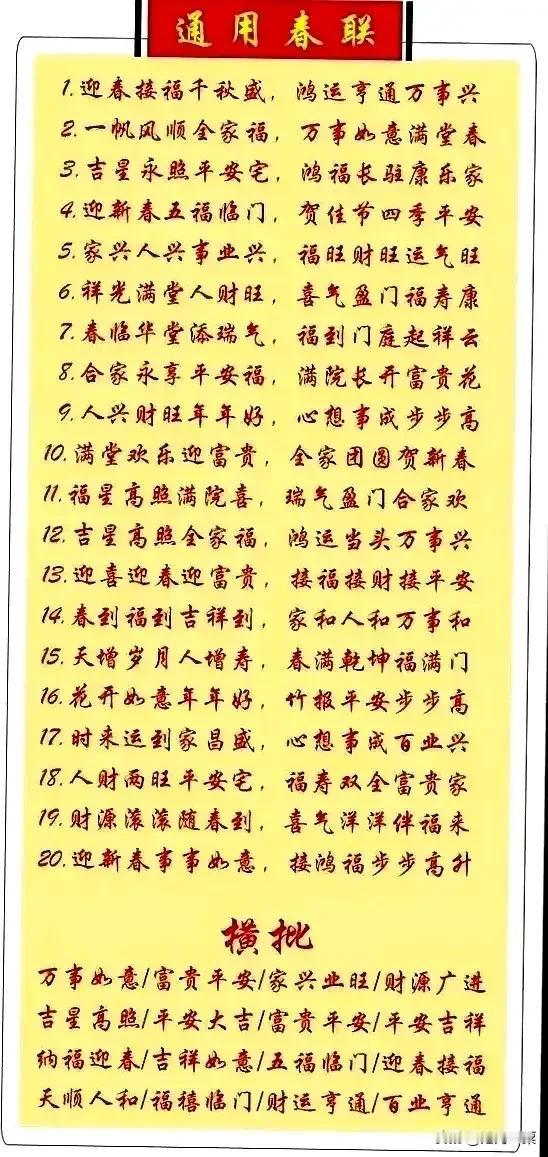 通用春联
1.迎春接福千秋盛，鸿运亨通万事兴
2.一帆风顺全家福，万事如意满堂春
3.吉星永照平安宅，鸿福长驻康乐家
4.迎新春五福临门，贺佳节四季平安
5.家兴人兴事业兴，福旺财旺运气旺
6.祥光满堂人财旺，喜气盈门福寿康
7.春临华堂添瑞气，福到门庭起祥云
8.合家永享平安福，满院长开富贵花
9.人兴财旺年年好，心想事成步步高
10.满堂欢乐迎富贵，全家团圆贺新春
11.福星高照满院喜，瑞气盈门合家欢
12.吉星高照全家福，鸿运当头万事兴
13.迎喜迎春迎富贵，接福接财接平安
14.春到福到吉祥到，家和人和万事和
15.天增岁月人增寿，春满乾坤福满门
16.花开如意年年好，竹报平安步步高
17.时来运到家昌盛，心想事成百业兴
18.人财两旺平安宅，福寿双全富贵家
19.财源滚滚随春到，喜气洋洋伴福来
20.迎新春事事如意，接鸿福步步高升
横批
万事如意/富贵平安/家兴业旺/财源广进
吉星高照/平安大吉/富贵平安/平安吉祥
纳福迎春/吉祥如意/五福临门/迎春接福
天顺人和/福禧临门/财运亨通/百业亨通